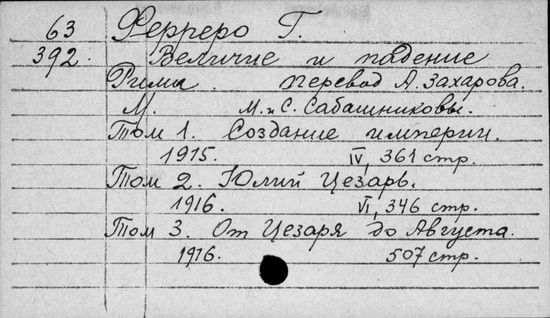 63 Ферреро Г.
392. Величие и падение
Рима. перевод А. Захарова.
М. М. и С. Сабашниковы.
Том 1. Создание империи.
1915. IV, 361 стр.
Том 2. Юлий Цезарь.
1916. VI, 346 стр.
Том 3. От Цезаря до Августа.
1916. 507 стр.